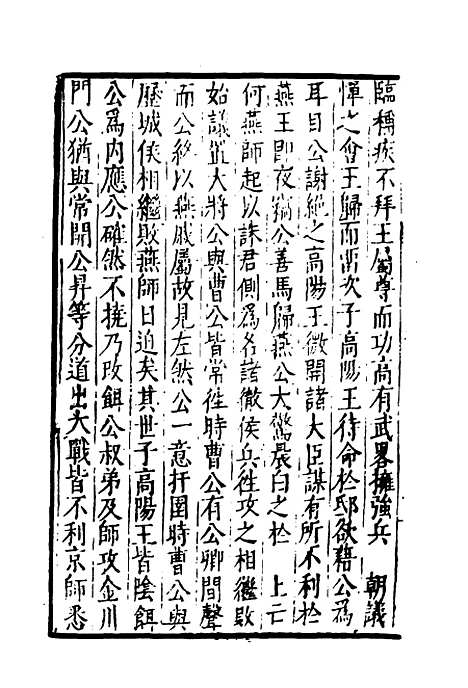 臨稱疾不拜王屬尊而功高有武畧擁強兵　朝議
憚之會王歸而畱次子高陽王待命於邸欲藉公爲
耳目公謝絶之高陽王微聞諸大臣謀有所不利於
燕王即夜竊公善馬歸燕公大驚晨白之於　上亡
何燕師起以誅君側爲名諸徹侯兵徃攻之相繼敗
始議置大將公與曹公皆常徃時曹公有公卿間聲
而公終以燕戚屬故見左然公一意扞圉時曹公與
歷城侯相繼敗燕師日迫矣其世子高陽王皆陰餌
公爲内應公確然不撓乃改餌公叔弟及師攻金川
門公猶與常開公昇等分道出大戰皆不利京師悉